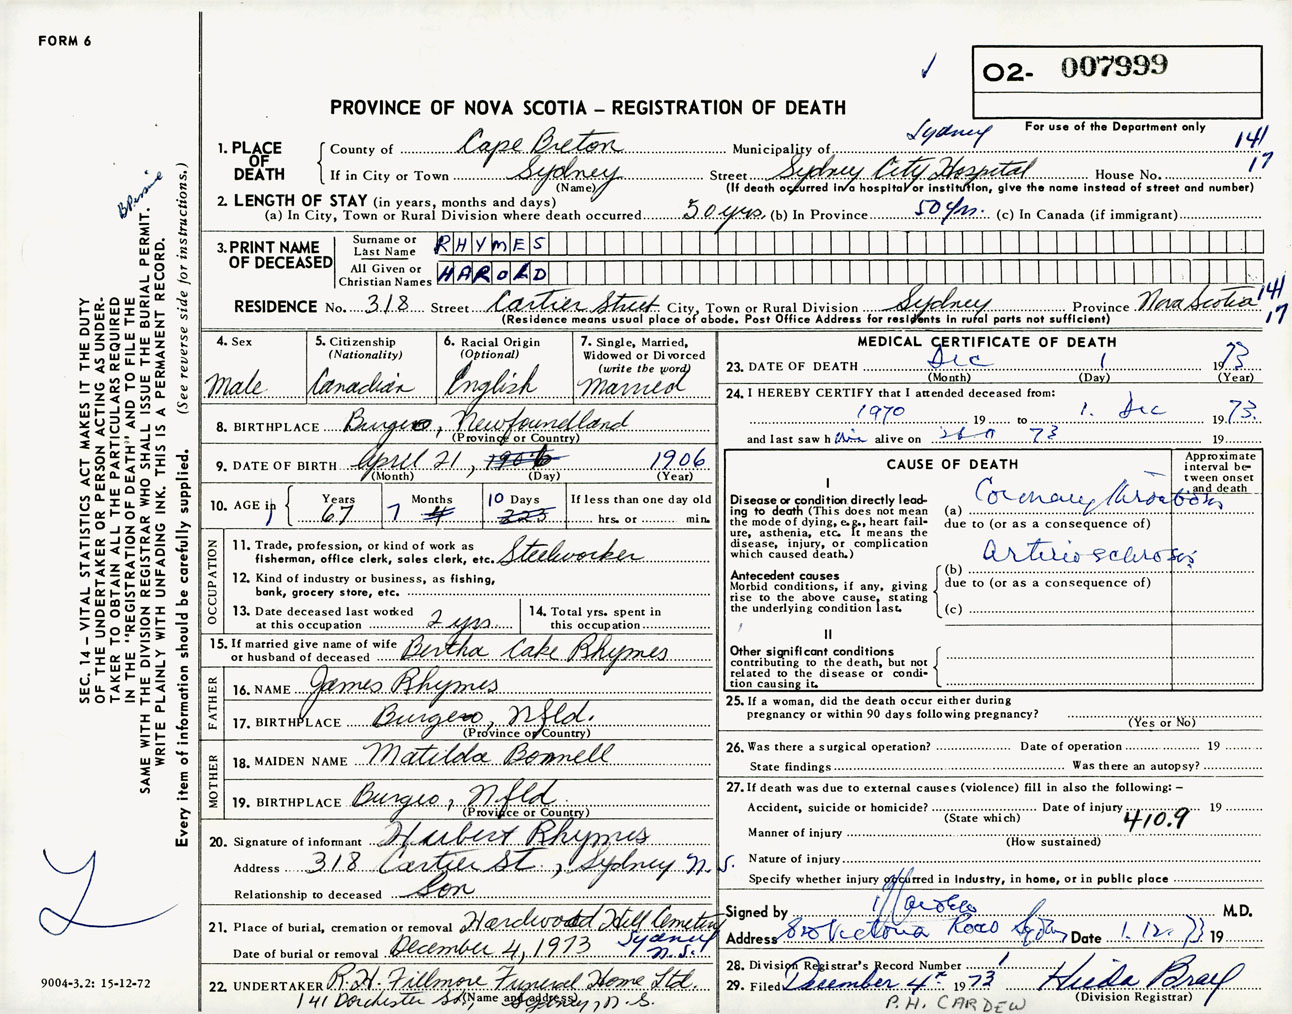 FORM 6
O2- 007999
PROVINCE OF NOVA SCOTIA – REGISTRATION OF DEATH
For use of the Department only
1. PLACE OF DEATH
County of Cape Breton Municipality of Sydney 141
If in City or Town Sydney Street Sydney City Hospital House No. 17
(Name) (If death occurred in a hospital or institution, give the name instead of street and number)
2. LENGTH OF STAY (in years, months and days)
(a) In City, Town or Rural Division where death occurred 50 yrs. (b) In Province 50 yrs. (c) In Canada (if immigrant)
3. PRINT NAME OF DECEASED
Surname or Last Name RHYMES
All Given or Christian Names HAROLD
RESIDENCE No. 318 Street Cartier Street City, Town or Rural Division Sydney Province Nova Scotia 141
(Residence means usual place of abode. Post Office Address for residents in rural parts not sufficient) 17
4. Sex
Male
5. Citizenship
(Nationality)
Canadian
6. Racial Origin
(Optional)
English
7. Single, Married,
Widowed or Divorced
(write the word)
Married
8. BIRTHPLACE Burgeo, Newfoundland
(Province or Country)
9. DATE OF BIRTH April 21, 1906 1906
(Month) (Day) (Year)
10. AGE in
Years 67
Months 7 4
10 Days 223
If less than one day old
hrs. or min.
OCCUPATION
11. Trade, profession, or kind of work as
fisherman, office clerk, sales clerk, etc. Steelworker
12. Kind of industry or business, as fishing,
bank, grocery store, etc.
13. Date deceased last worked
at this occupation 2 yrs.
14. Total yrs. spent in
this occupation
15. If married give name of wife
or husband of deceased Bertha Cake Rhymes
FATHER
16. NAME James Rhymes
17. BIRTHPLACE Burgeo, Nfld.
(Province or Country)
MOTHER
18. MAIDEN NAME Matilda Bonnell
19. BIRTHPLACE Burgeo, Nfld.
(Province or Country)
20. Signature of informant Harbert Rhymes
Address 318 Cartier St., Sydney N.S.
Relationship to deceased Son
21. Place of burial, cremation or removal Hardwood Hill Cemetery
Sydney N.S.
Date of burial or removal December 4, 1973
22. UNDERTAKER R.H. Fillmore Funeral Home Ltd.
(Name and address)
141 Dorchester St., Sydney, N.S.
MEDICAL CERTIFICATE OF DEATH
23. DATE OF DEATH Dec 1 1973
(Month) (Day) (Year)
24. I HEREBY CERTIFY that I attended deceased from:
1970 19 to 1. Dec 1973.
and last saw him alive on 73 19
CAUSE OF DEATH
Approximate
interval be-
tween onset
and death
I
Disease or condition directly lead-
ing to death (This does not mean
the mode of dying, e.g., heart fail-
ure, asthenia, etc. It means the
disease, injury, or complication
which caused death.)
(a) Coronary Thrombosis
due to (or as a consequence of)
Antecedent causes
Morbid conditions, if any, giving
rise to the above cause, stating
the underlying condition last.
(b) Arteriosclerosis
due to (or as a consequence of)
(c)
II
Other significant conditions
contributing to the death, but not
related to the disease or condi-
tion causing it.
25. If a woman, did the death occur either during
pregnancy or within 90 days following pregnancy?
(Yes or No)
26. Was there a surgical operation? Date of operation 19
State findings Was there an autopsy?
27. If death was due to external causes (violence) fill in also the following: –
Accident, suicide or homicide? Date of injury 19
(State which)
410.9
Manner of injury
(How sustained)
Nature of injury
Specify whether injury occurred in industry, in home, or in public place
Signed by M.D.
Address Victoria Road Sydney Date 1. 12. 73 19
28. Division Registrar's Record Number
29. Filed December 4th 1973 Hilda Bray
(Division Registrar)
P.H. CARDEW
SEC. 14 – VITAL STATISTICS ACT MAKES IT THE DUTY
OF THE UNDERTAKER OR PERSON ACTING AS UNDER-
TAKER TO OBTAIN ALL THE PARTICULARS REQUIRED
IN THE "REGISTRATION OF DEATH" AND TO FILE THE
SAME WITH THE DIVISION REGISTRAR WHO SHALL ISSUE THE BURIAL PERMIT.
WRITE PLAINLY WITH UNFADING INK. THIS IS A PERMANENT RECORD.
Every item of information should be carefully supplied. (See reverse side for instructions.)
9004-3.2: 15-12-72